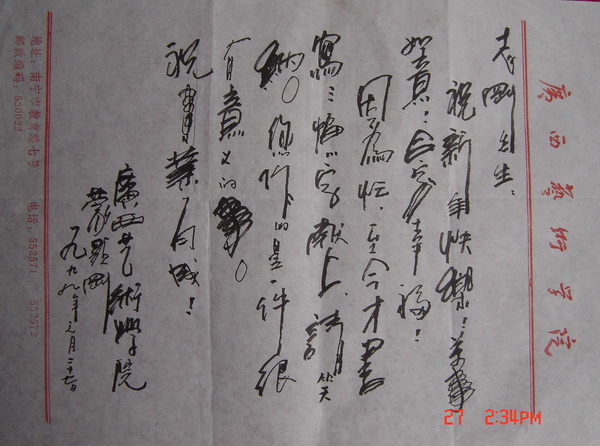 廣西藝術學院
剛先生：
祝新年快樂！萬事
如意！合家幸福！
因為忙，至今才書
寫三幅字獻上，請笑
納。您作的是一件很
有意义的事。
祝事業有成！
廣西艺術學院
剛
一九九九年元月二十七日
地址：南宁市教育路七号 电话：552571 552972
邮政编码：530022
27 2:34PM